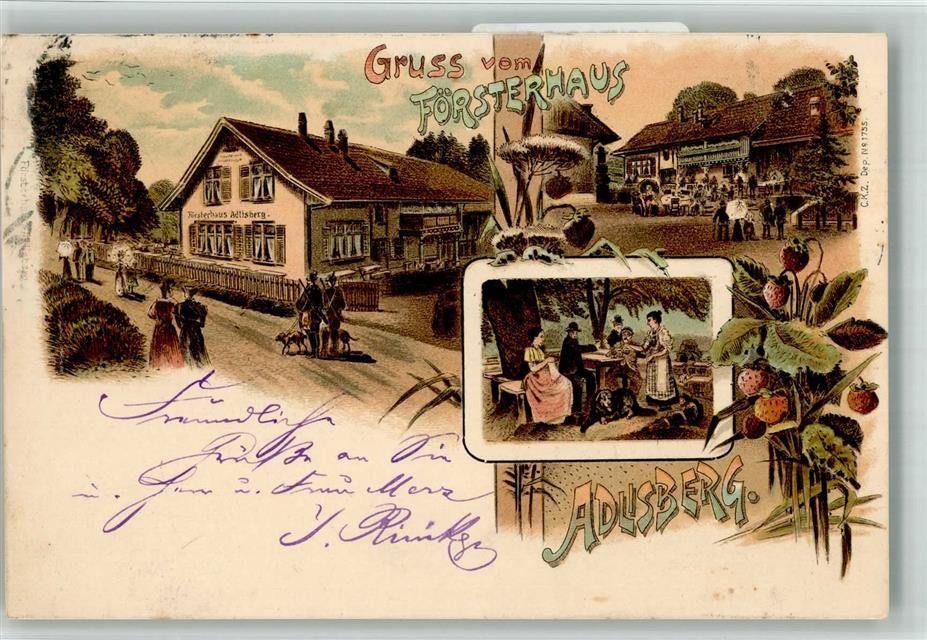 Gruss vom
Försterhaus
Försterhaus Adlisberg.
C.K.Z. Dep. No 1755.
Adlisberg.
Freundliche
Grüße an Sie
u. Herr u. Frau Merz